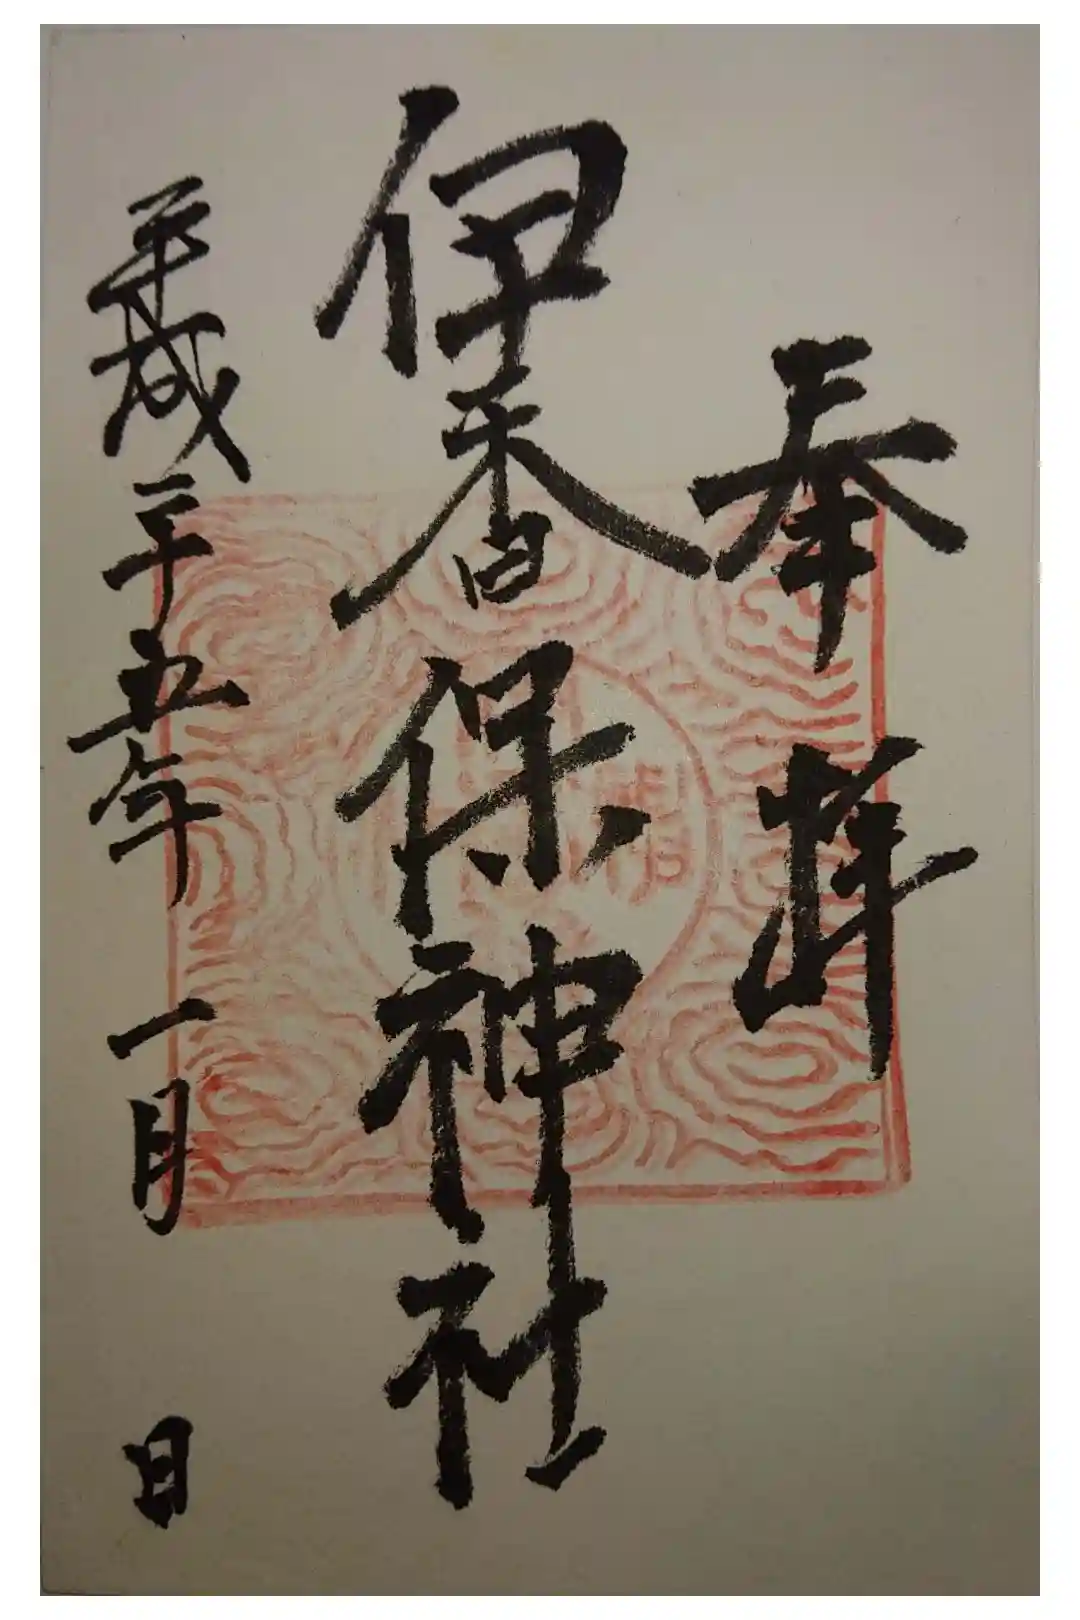 奉拝
伊香保神社
平成二十五年一月　日